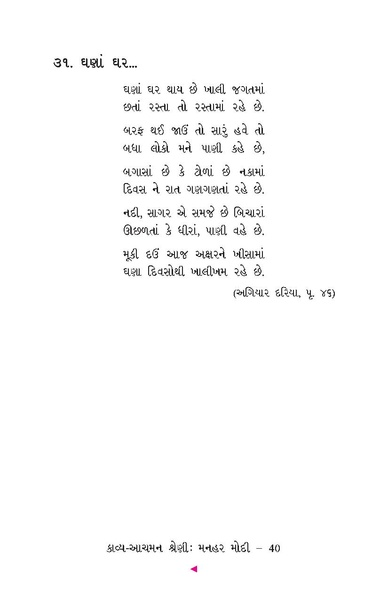 ૩૧. ઘણાં ઘર...
ઘણાં ઘર થાય છે ખાલી જગતમાં
છતાં રસ્તા તો રસ્તામાં રહે છે.
બરફ થઈ જાઉં તો સારું હવે તો
બધા લોકો મને પાણી કહે છે,
બગાસાં છે કે ટોળાં છે નકામાં
દિવસ ને રાત ગણગણતાં રહે છે.
નદી, સાગર એ સમજે છે બિચારાં
ઊછળતાં કે ધીરાં, પાણી વહે છે.
મૂકી દઉં આજ અક્ષરને ખીસામાં
ઘણા દિવસોથી ખાલીખમ રહે છે.
(અગિયાર દરિયા, પૃ. ૪૬)
કાવ્ય-આચમન શ્રેણીઃ મનહર મોદી – 40